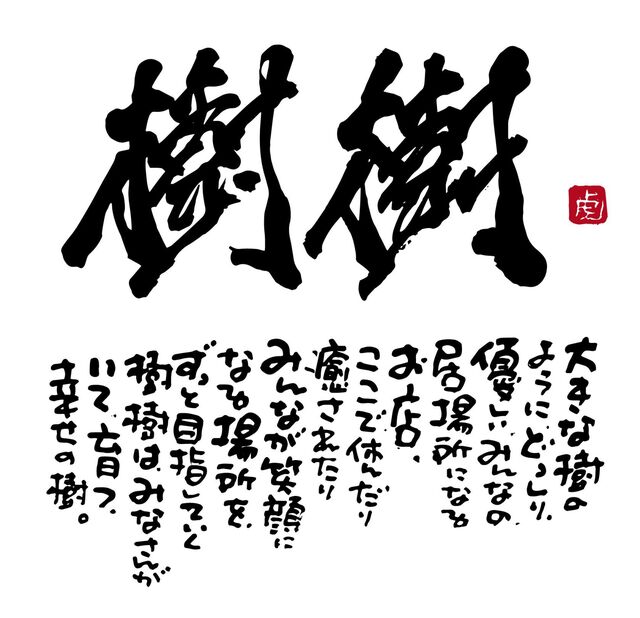 樹樹
虎
大きな樹の
ようにどっしり、
優しい、みんなの
居場所になる
お店、
ここで休んだり
癒されたり
みんなが笑顔に
なる場所を、
ずっと目指していく
樹樹は、みなさんが
いて、育つ、
幸せの樹。